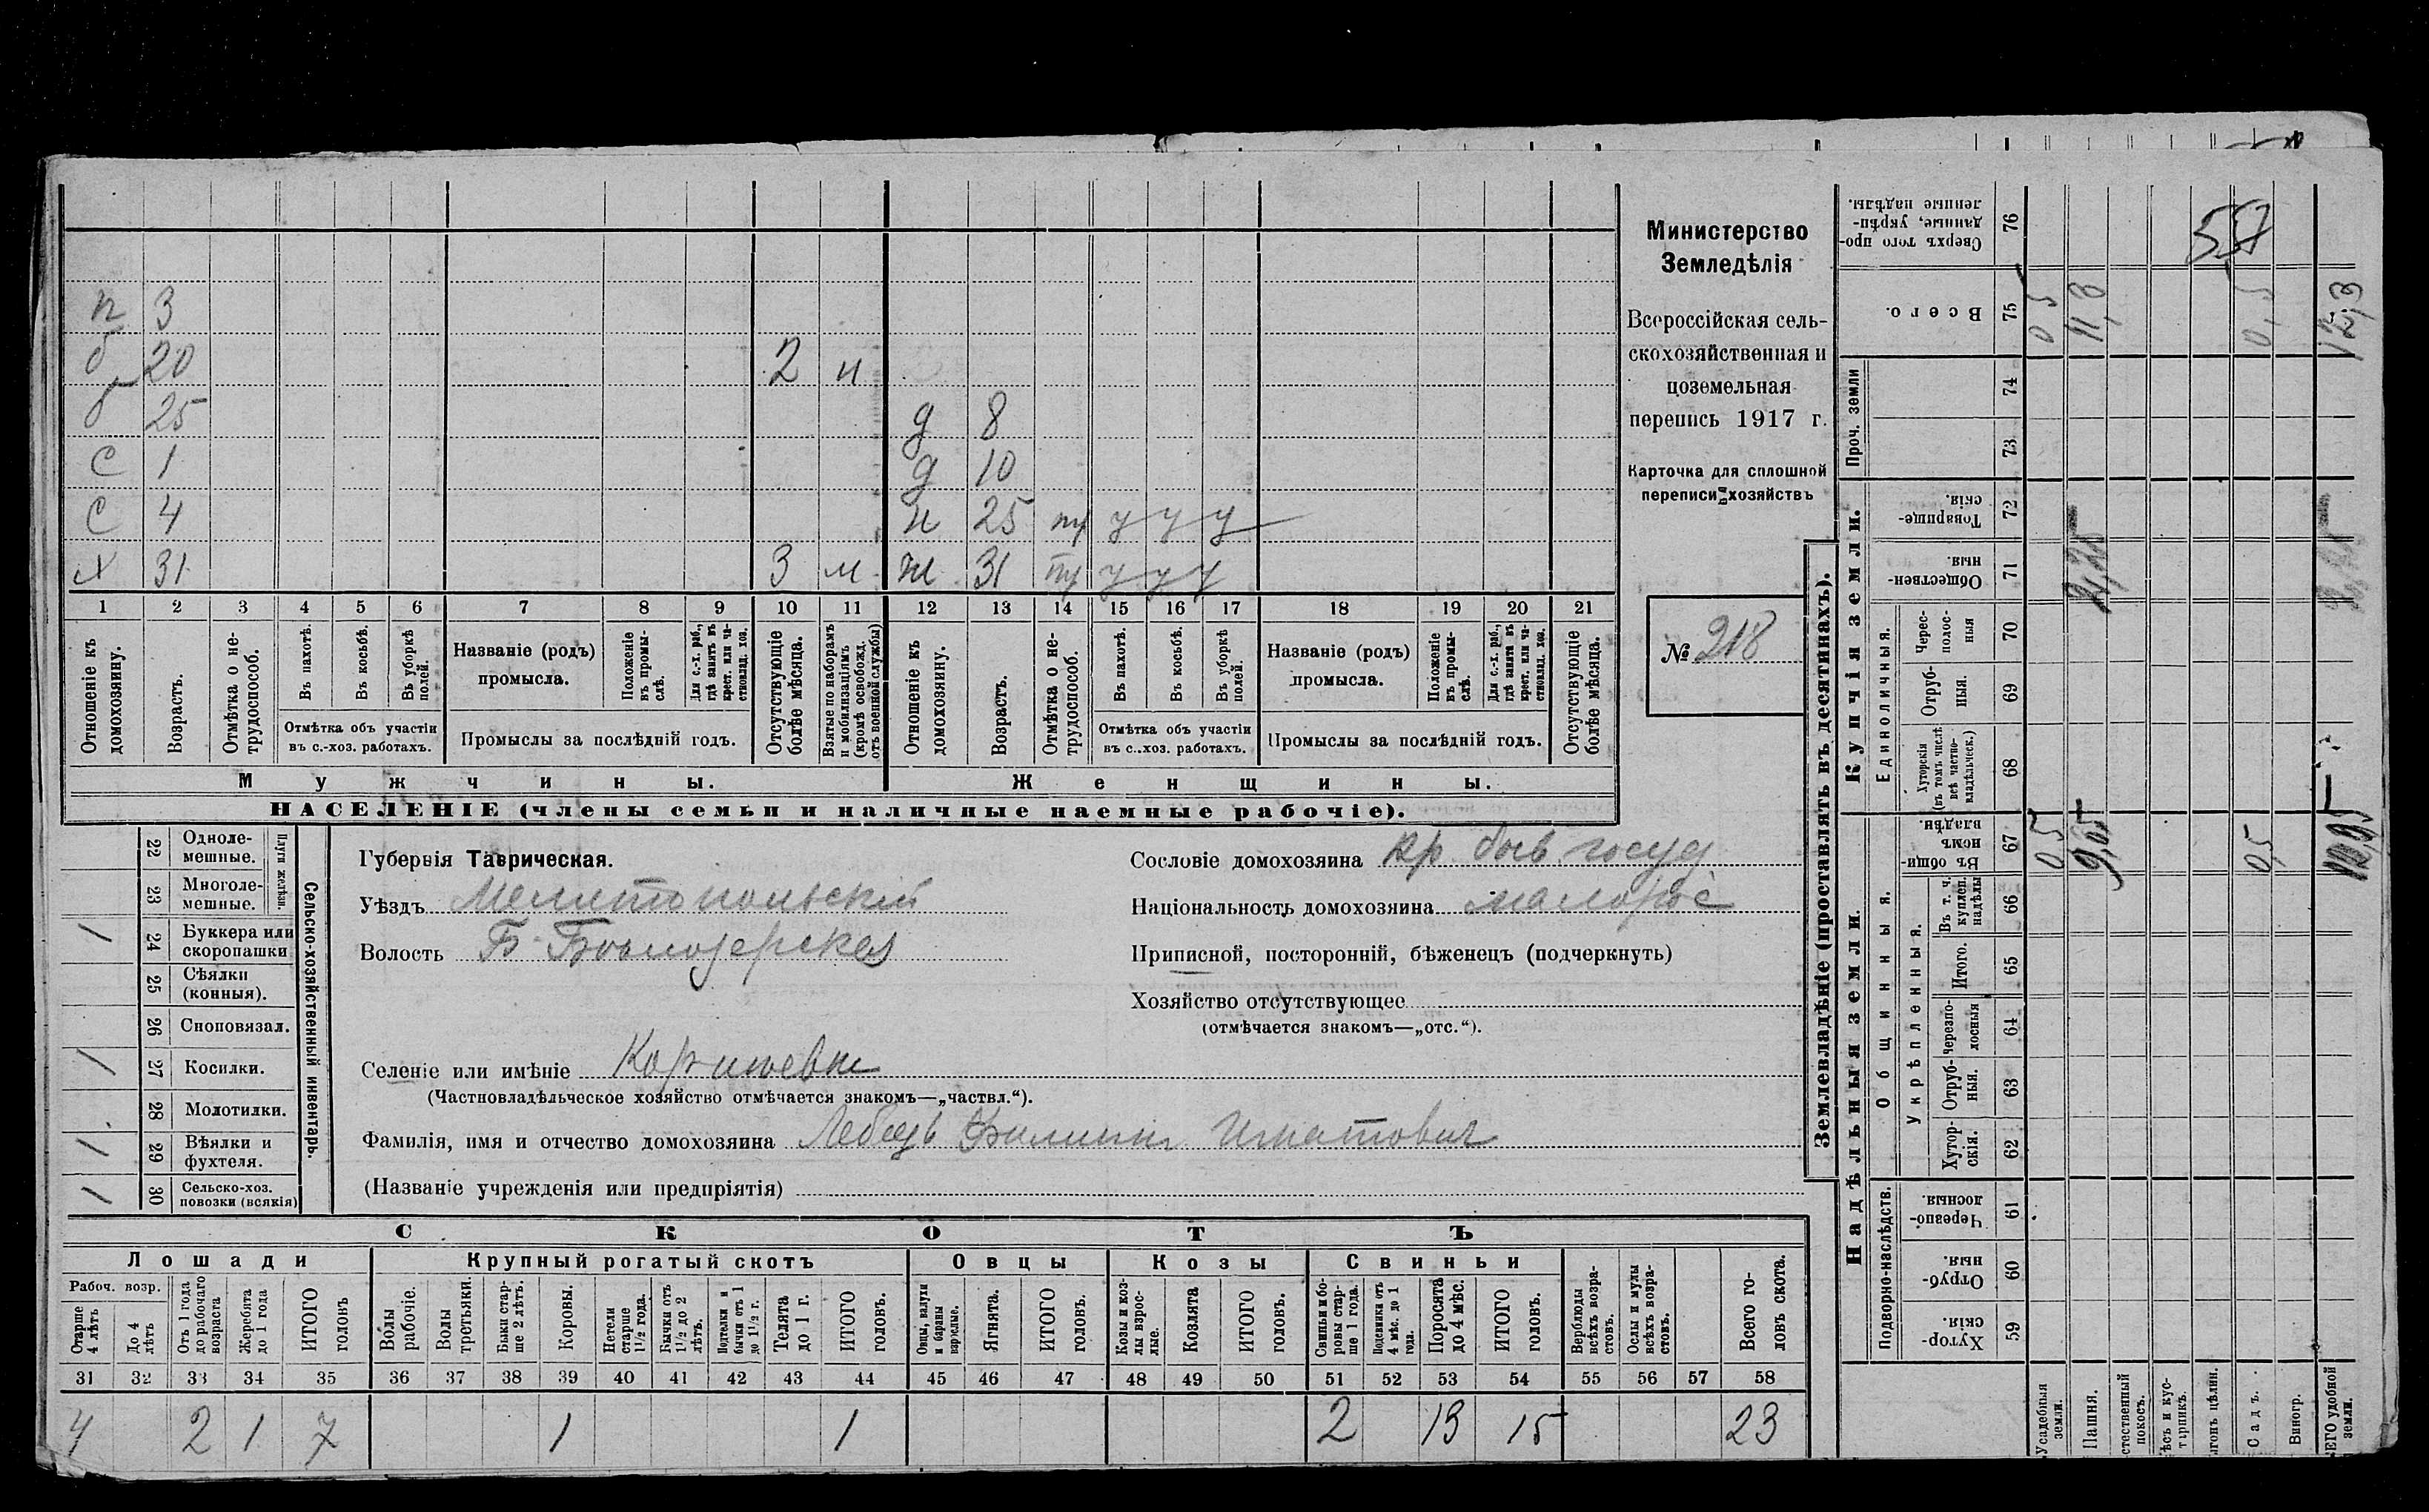 п 3
б 20 2 н
б 25 д 8
с 1 д 10
с 4 н 25 тр у у у
х 31 3 м ж 31 тр у у у
1 2 3 4 5 6 7 8 9 10 11 12 13 14 15 16 17 18 19 20 21
Отношеніе къ домохозяину.
Возрастъ.
Отмѣтка о нетрудоспособ.
Въ пахотѣ.
Въ косьбѣ.
Въ уборкѣ полей.
Отмѣтка объ участіи въ с.-хоз. работахъ.
Названіе (родъ) промысла.
Положеніе въ промыслѣ.
Для с.-х. раб., гдѣ занятъ въ крест. или частновлад. хоз.
Промыслы за послѣдній годъ.
Отсутствующіе болѣе мѣсяца.
Взятые по наборамъ и мобилизаціямъ (кромѣ освобожд. отъ военной службы)
Отношеніе къ домохозяину.
Возрастъ.
Отмѣтка о нетрудоспособ.
Въ пахотѣ.
Въ косьбѣ.
Въ уборкѣ полей.
Отмѣтка объ участіи въ с..хоз. работахъ.
Названіе (родъ) промысла.
Положеніе въ промыслѣ.
Для с.-х. раб., гдѣ занята въ крест. или частновлад. хоз.
Промыслы за послѣдній годъ.
Отсутствующіе болѣе мѣсяца.
Мужчины. Женщины.
НАСЕЛЕНІЕ (члены семьи и наличные наемные рабочіе).
Министерство
Земледѣлія
Всероссійская сель-
скохозяйственная и
поземельная
перепись 1917 г.
Карточка для сплошной
переписи хозяйствъ
№ 218
22 Одноле-
мешные.
23 Многоле-
мешные.
Плуги желѣзн.
/ 24 Буккера или
скоропашки
25 Сѣялки
(конныя).
26 Сноповязал.
/ 27 Косилки.
28 Молотилки.
/ 29 Вѣялки и
фухтеля.
/ 30 Сельско-хоз.
повозки (всякія)
Сельско-хозяйственный инвентарь.
Губернія Таврическая.
Уѣздъ Мелитопольскій
Волость Б-Бѣлозерская
Селеніе или имѣніе
(Частновладѣльческое хозяйство отмѣчается знакомъ—„частвл.“).
Фамилія, имя и отчество домохозяина Лебедь Филиппъ Игнатовичъ
(Названіе учрежденія или предпріятія)
Сословіе домохозяина кр. быв госуд
Національность домохозяина малорос
Приписной, посторонній, бѣженецъ (подчеркнуть)
Хозяйство отсутствующее
(отмѣчается знакомъ—„отс.“).
СКОТЪ
Лошади Крупный рогатый скотъ Овцы Козы Свиньи
Рабоч. возр.
Старше 4 лѣтъ
До 4 лѣтъ
Отъ 1 года до рабочаго возраста
Жеребята до 1 года
ИТОГО головъ
Волы рабочіе.
Волы третьяки.
Быки старше 2 лѣтъ.
Коровы.
Нетели старше 1½ года.
Бычки отъ 1½ до 2 лѣтъ.
Подтелки и бычки отъ 1 до 1½ г.
Телята до 1 г.
ИТОГО головъ.
Овцы, валухи и бараны взрослые.
Ягнята.
ИТОГО головъ.
Козы и козлы взрослые.
Козлята
ИТОГО головъ.
Свиньи и боровы старше 1 года.
Подсвинки отъ 4 мѣс. до 1 года.
Поросята до 4 мѣс.
ИТОГО головъ.
Верблюды всѣхъ возрастовъ.
Ослы и мулы всѣхъ возрастовъ.
Всего головъ скота.
31 32 33 34 35 36 37 38 39 40 41 42 43 44 45 46 47 48 49 50 51 52 53 54 55 56 57 58
4 2 1 7 1 1 2 13 15 23
Землевладѣніе (проставлять въ десятинахъ).
Надѣльныя земли. Купчія земли.
Проч. земли
Подворно-наслѣдств.
Общинныя.
Укрѣпленныя.
Единоличныя.
Сверхъ того проданные, укрѣпленные надѣлы. 76
Всего. 75
74
73
Товарищескія. 72
Общественныя. 71
Чересполосныя 70
Отрубныя. 69
Хуторскія (въ томъ числѣ всѣ частновладѣльческ.) 68
Въ общинномъ владѣн. 67
Въ т. ч. куплен. надѣлы 66
Итого. 65
Черезполосныя 64
Отрубныя. 63
Хуторскія. 62
Черезполосныя. 61
Отрубныя. 60
Хуторскія. 59
Усадебныя земли.
Пашня.
стественный покосъ.
ѣсъ и кустарникъ.
ыгонъ цѣлин.
Садъ.
Виногр.
ЕГО удобной земли.
57
0 5 11,8 0,5 12,3
2,25
0 5 9,05 0,5